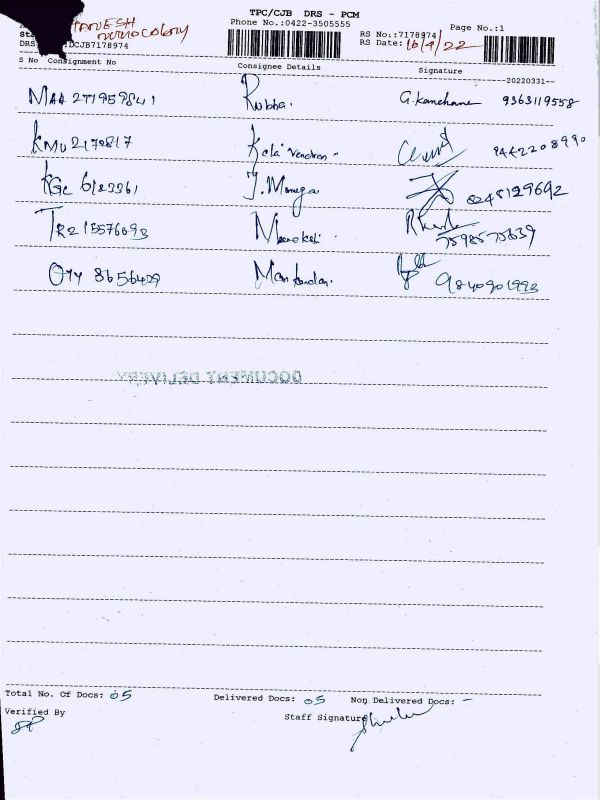 TPC/CJB DRS - PCM
Phone No.:0422-3505555
Page No.:1
RS No.:7178974
RS Date: 16/4/22
DCJB7178974
S No Consignment No Consignee Details Signature
20220331
MAA 271959841 Rubha. G. Kanchana 9363119558
KMU 2170817 9442208990
KGL 6183361 8248129692
TR2 15576093 7598575639
8656409 Manikandan. 9840901993
DOCUMENT DELIVERY
Total No. Of Docs: 05 Delivered Docs: 05 Non Delivered Docs: -
Verified By
Staff Signature